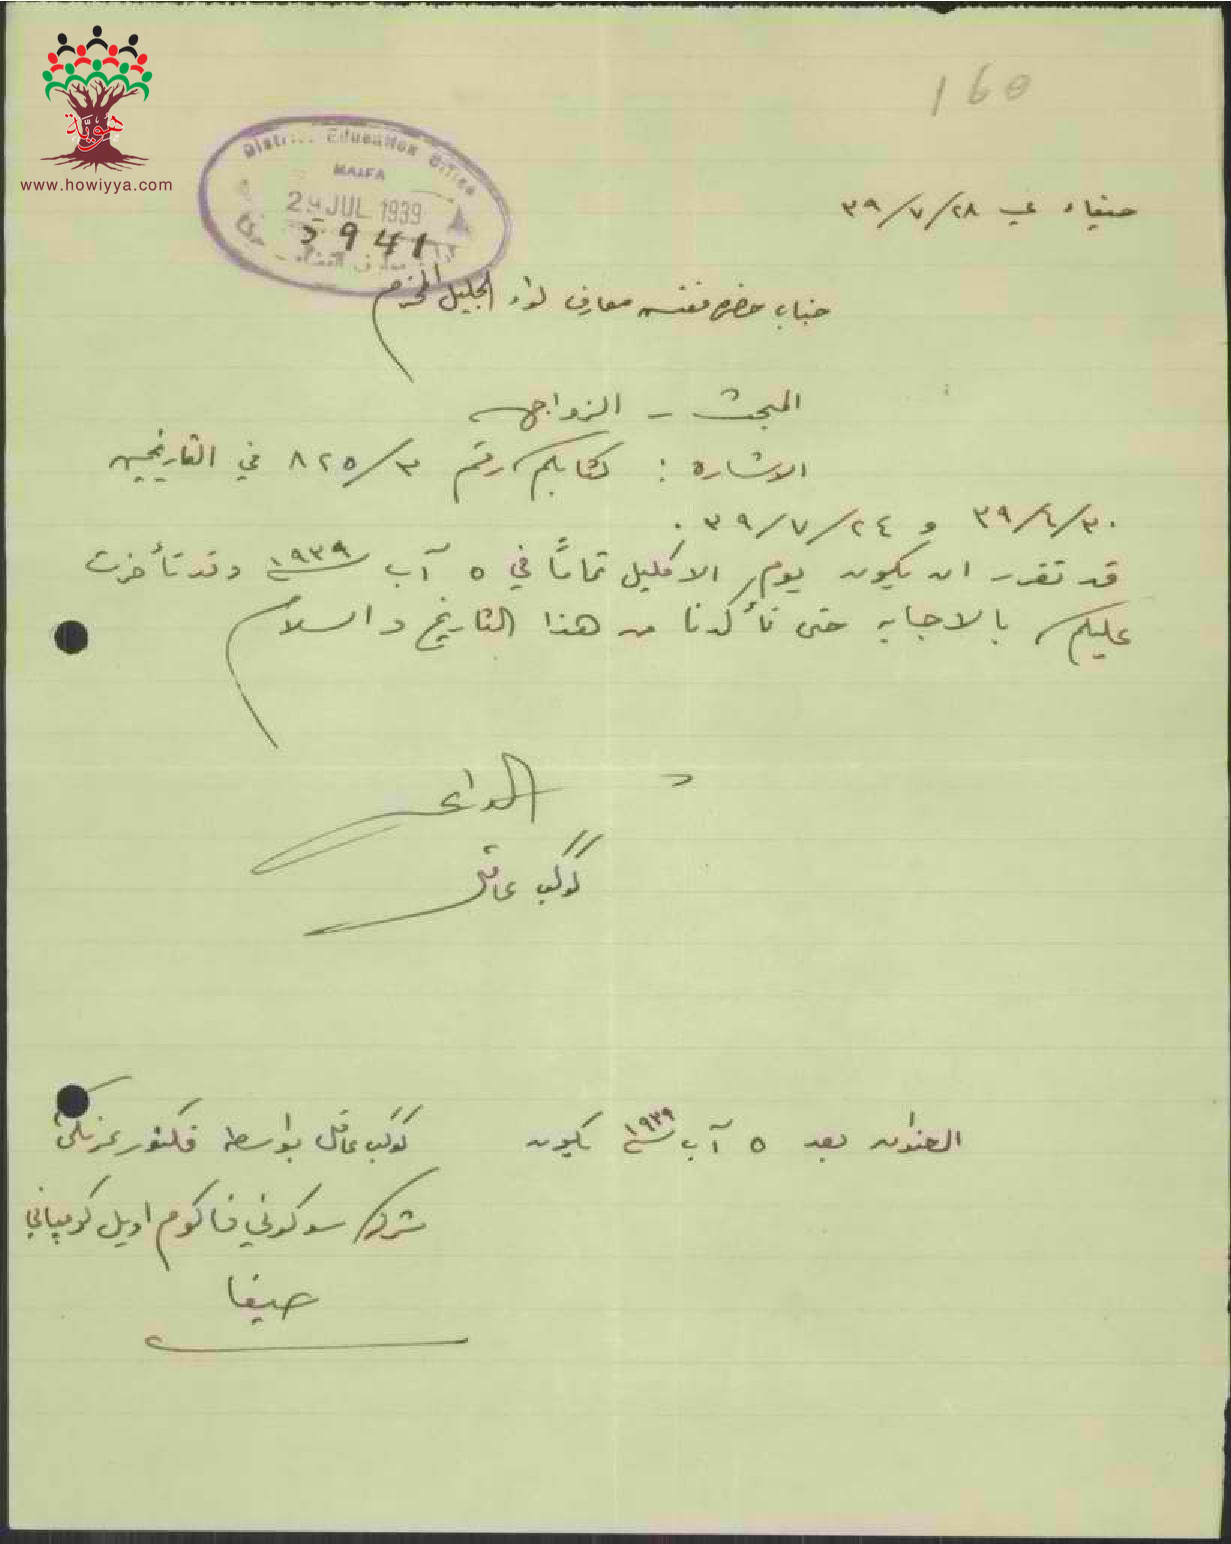 160
هويّة
www.howiyya.com
District Education Office
HAIFA
29 JUL 1939
5941
حيفاء في ٢٨/٧/٣٩
جناب حضرة مفتش معارف لواء الجليل المحترم
المبحث – الزواج
الاشارة : كتابكم رقم ٣/٨٢٥ في التاريخين
٣٠/٦/٣٩ و ٢٤/٧/٣٩ .
قد تقرر ان يكون يوم الاكليل تماماً في ٥ آب سنة ١٩٣٩ وقد تأخرت
عليكم بالاجابه حتى تأكدنا من هذا التاريخ والسلام
الداعي
كوكب عاقل
العنوان بعد ٥ آب سنة ١٩٣٩ يكون كوكب عاقل بواسطة فكتور
شركة سوكوني فاكوم اويل كومباني
حيفا